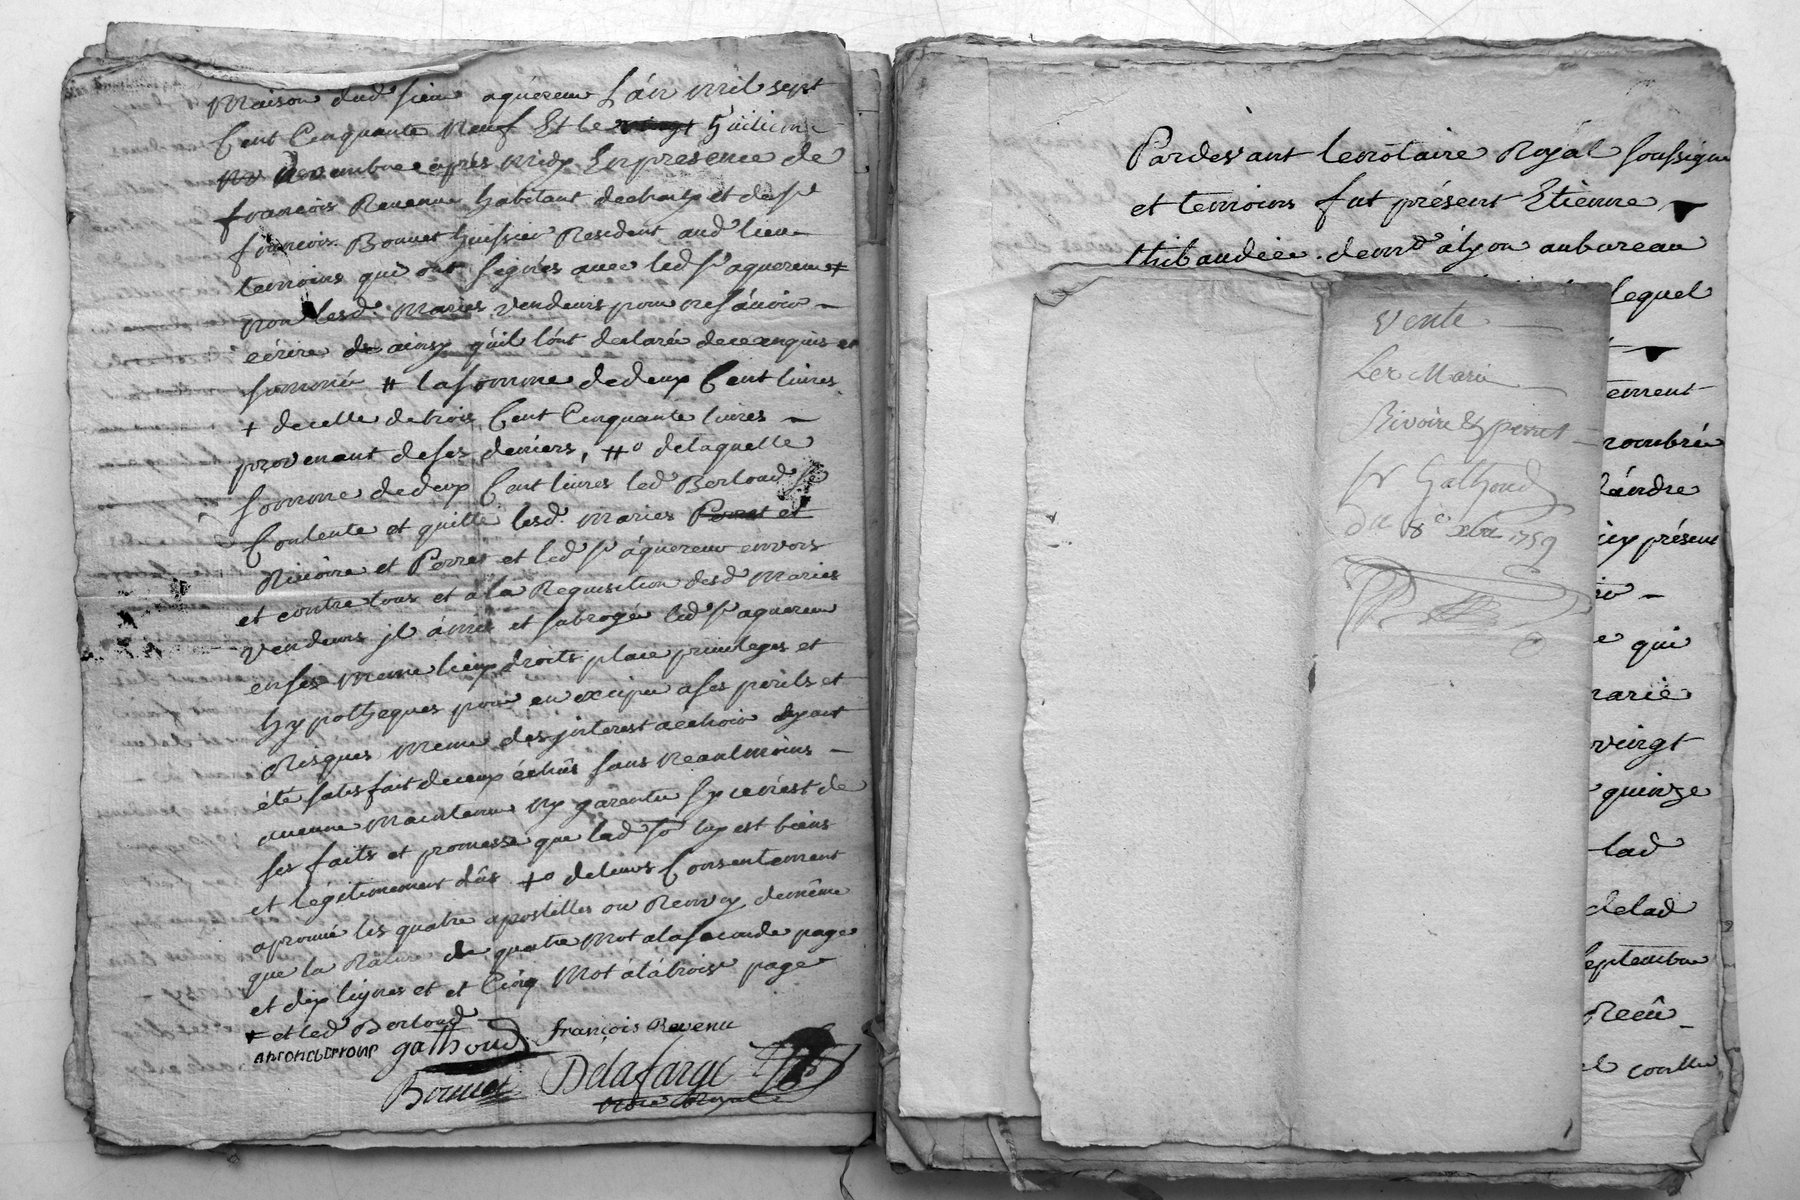 Maison dud. sieur aquéreur L'an mil sept
Cent Cinquante Neuf Et le vingt huitiem
novembre après midy En presence de
françois Revenu habitant decharly et de sr
francois Bonnet huissier Resident aud. lieu
temoins qui ont signés avec led. sr aquereur +
non lesd. Maries vendeurs pour ne sçavoir
ecrire de ainsy qu'il l'ont declaré de ce enquis et
sommé # la somme de deux Cent livres
+ decelle de trois Cent Cinquante livres
provenant de ses deniers, #o delaquelle
somme dedeux Cent livres led Berloud se
Contente et quitte lesd. Maries Perret et
Rivoire et Perret et led sr aquereur envers
et contre tous et a la Requisition desd Maries
vendeurs il a mis et subrogé led sr aquereur
en ses meme lieux droits place privileges et
hypotheques pour en exciper a ses perils et
Risques meme des interest a echoir ayant
été satisfait de ceux échus sans neantmoins
aucune Maintenue ny garentie sy ce n'est de
ses faits et promesse que lad. so luy est biens
et légitimement dûs +o de leurs Consentement
aprouvé les quatre apostilles ou Renvoy demême
que la Rature de quatre Mot a la seconde page
et dix lignes et et Cinq Mot à la troise page
+ et led Berloud
gathoud françois Revenu
Bonnet Delafarge
Nore Royal
Pardevant lenotaire Royal soussigné
et temoins fut présent Etienne
thibaudier. demt à lyon aubureau
lequel
ement
nombré
présent
qui
marie
vingt
quinze
lad
delad
septembre
Recû
Vente
Les Marié
Rivoire & perret
sr Gathoud
Du 8e xbre 1759